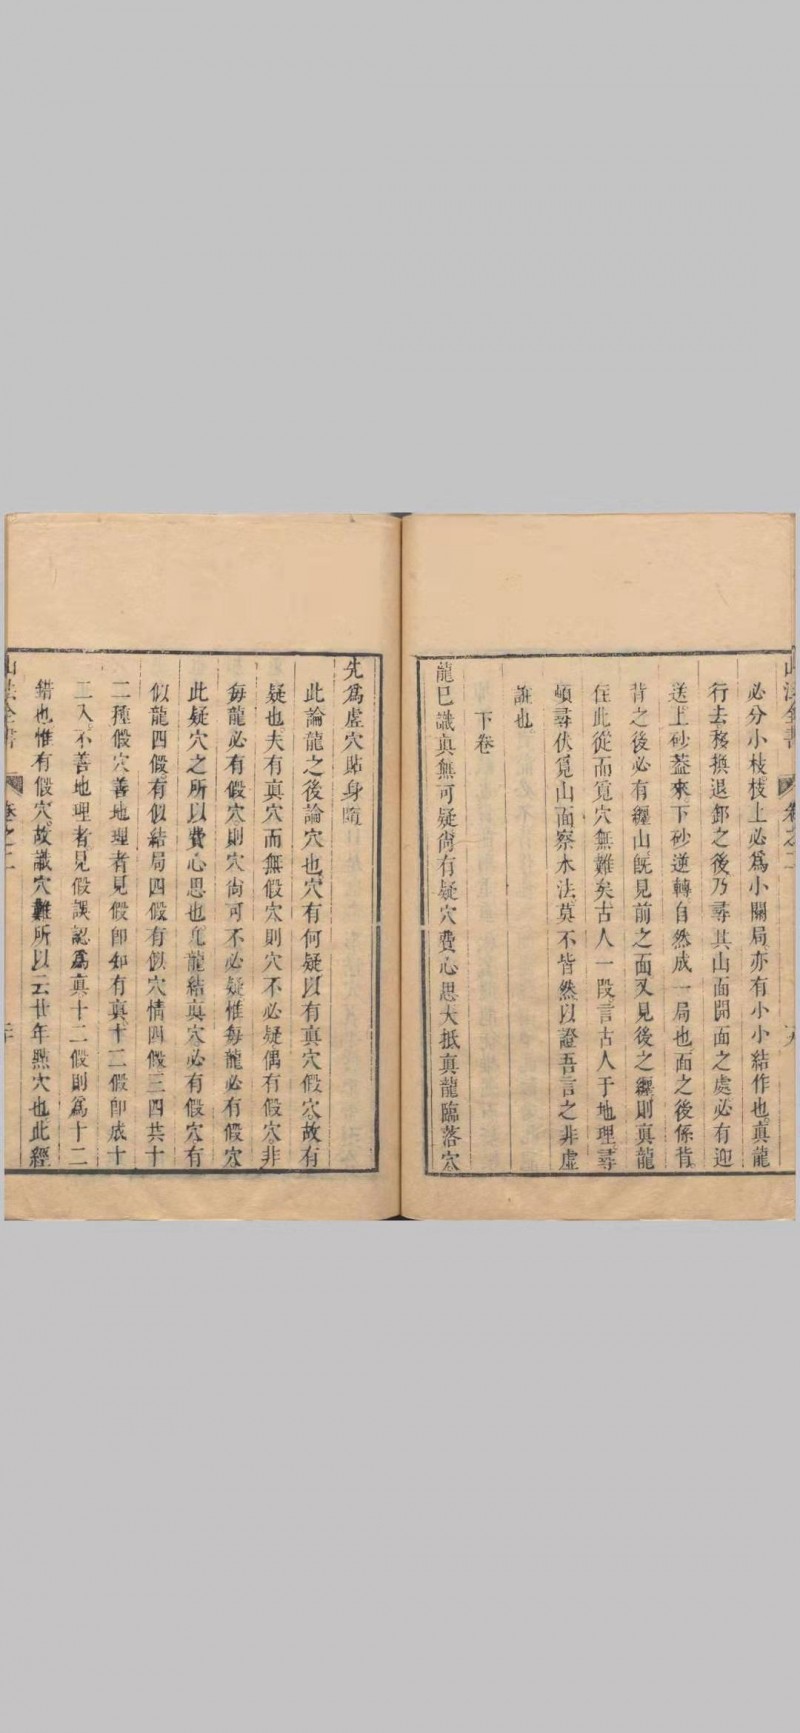 山法全書 卷之二
必分小枝枝上必爲小關局亦有小小結作也真龍
行去移換退卸之後乃尋其山面開面之處必有迎
送上砂葢來下砂逆轉自然成一局也面之後係背
背之後必有纏山旣見前之面又見後之纏則真龍
在此從而覓穴無難矣古人一段言古人于地理尋
頓尋伏覓山面察水法莫不皆然以證吾言之非虛
誑也
下卷
龍已識真無可疑尚有疑穴費心思大抵真龍臨落穴
先爲虛穴貼身隨
此論龍之後論穴也穴有何疑以有真穴假穴故有
疑也夫有真穴而無假穴則穴不必疑偶有假穴非
每龍必有假穴則穴尚可不必疑惟每龍必有假穴
此疑穴之所以費心思也凡龍結真穴必有假穴有
似龍四假有似結局四假有似穴情四假三四共十
二種假穴善地理者見假卽知有真十二假卽底十
二入不善地理者見假誤認爲真十二假則爲十二
錯也惟有假穴故識穴難所以云廿年㸃穴也此經
山法全書 卷之二